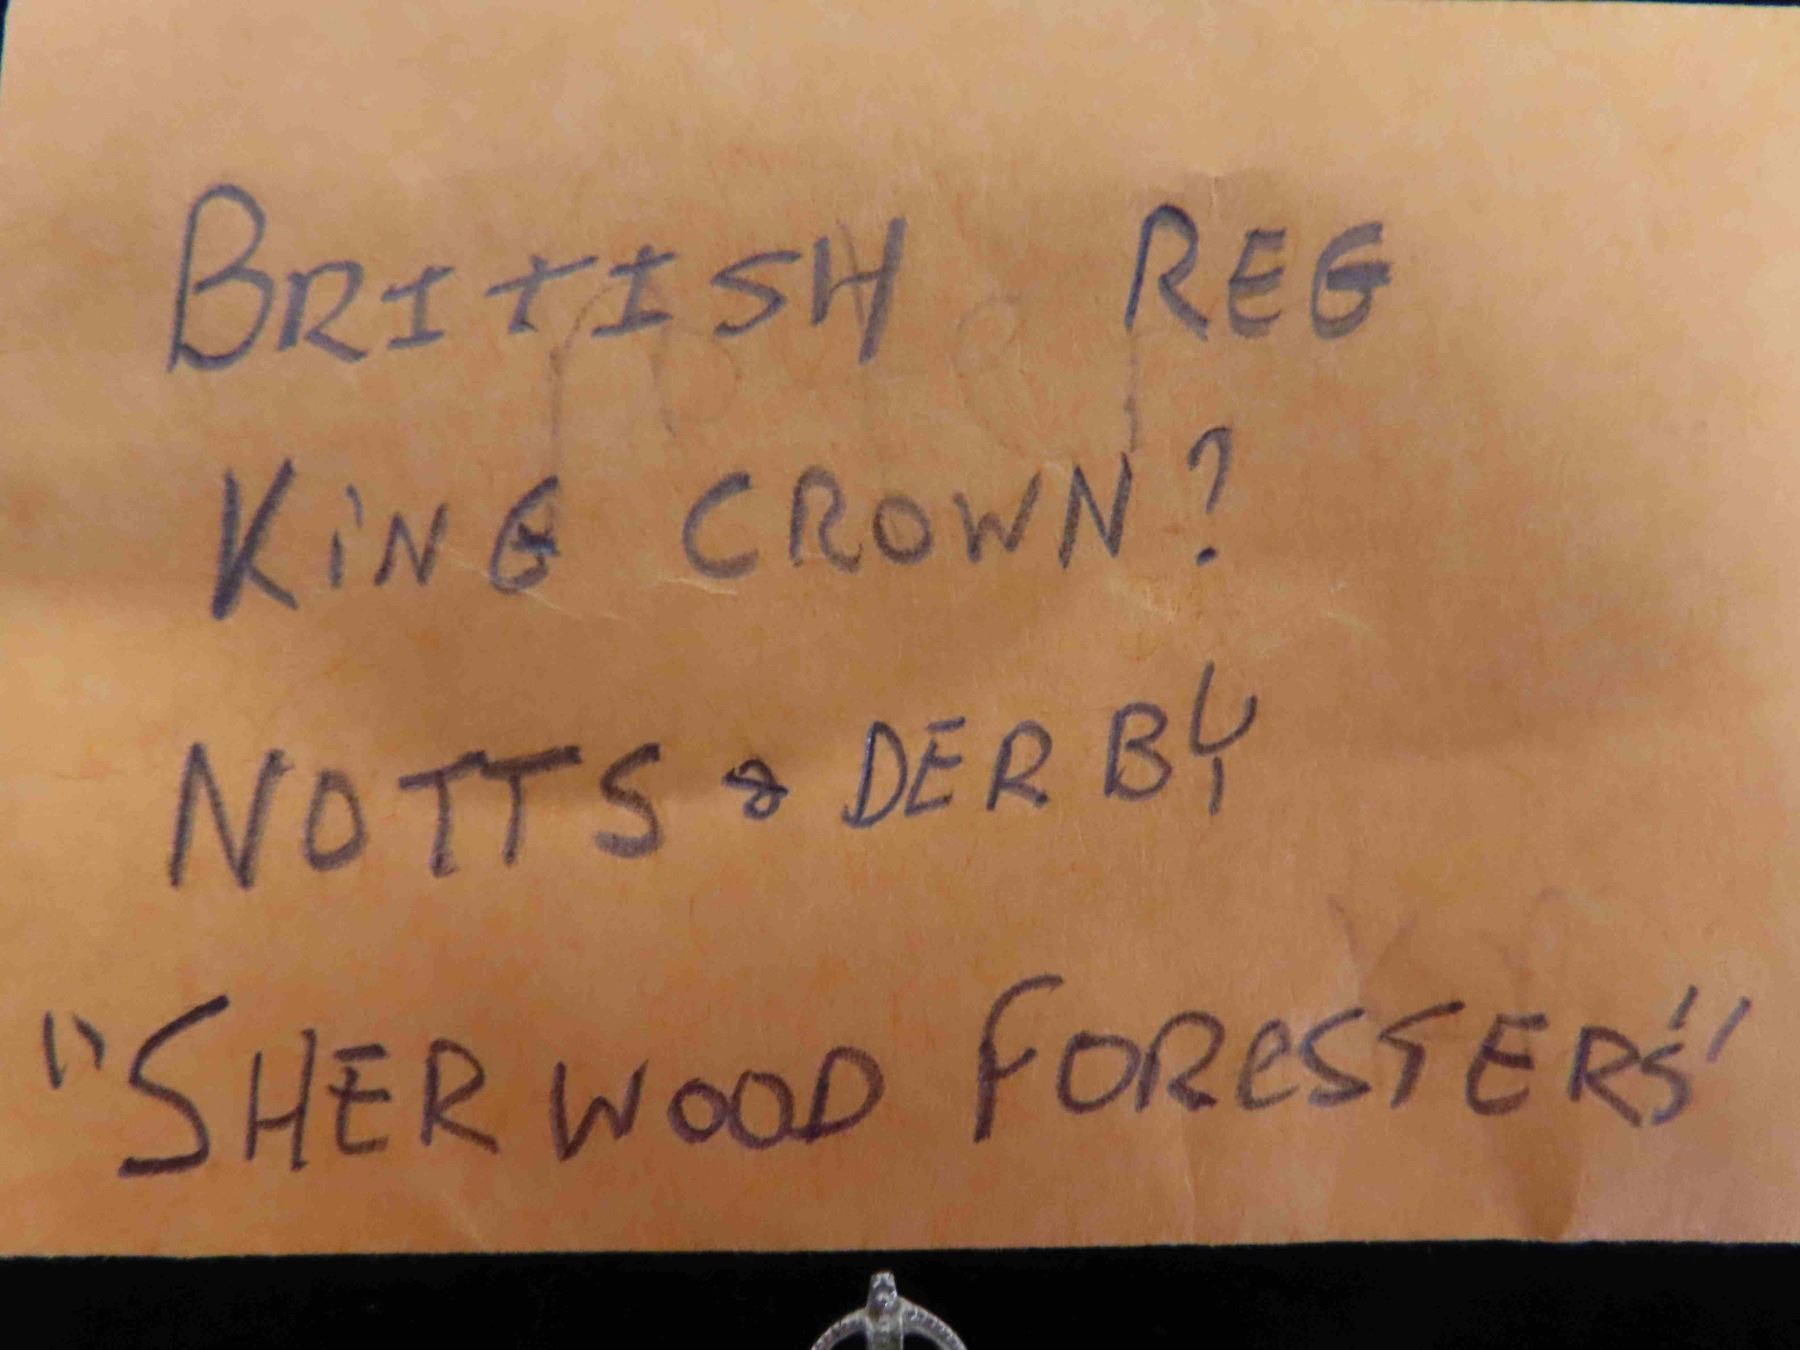 BRITISH REG
KING CROWN?
NOTTS & DERBY
"SHERWOOD FORESTERS"